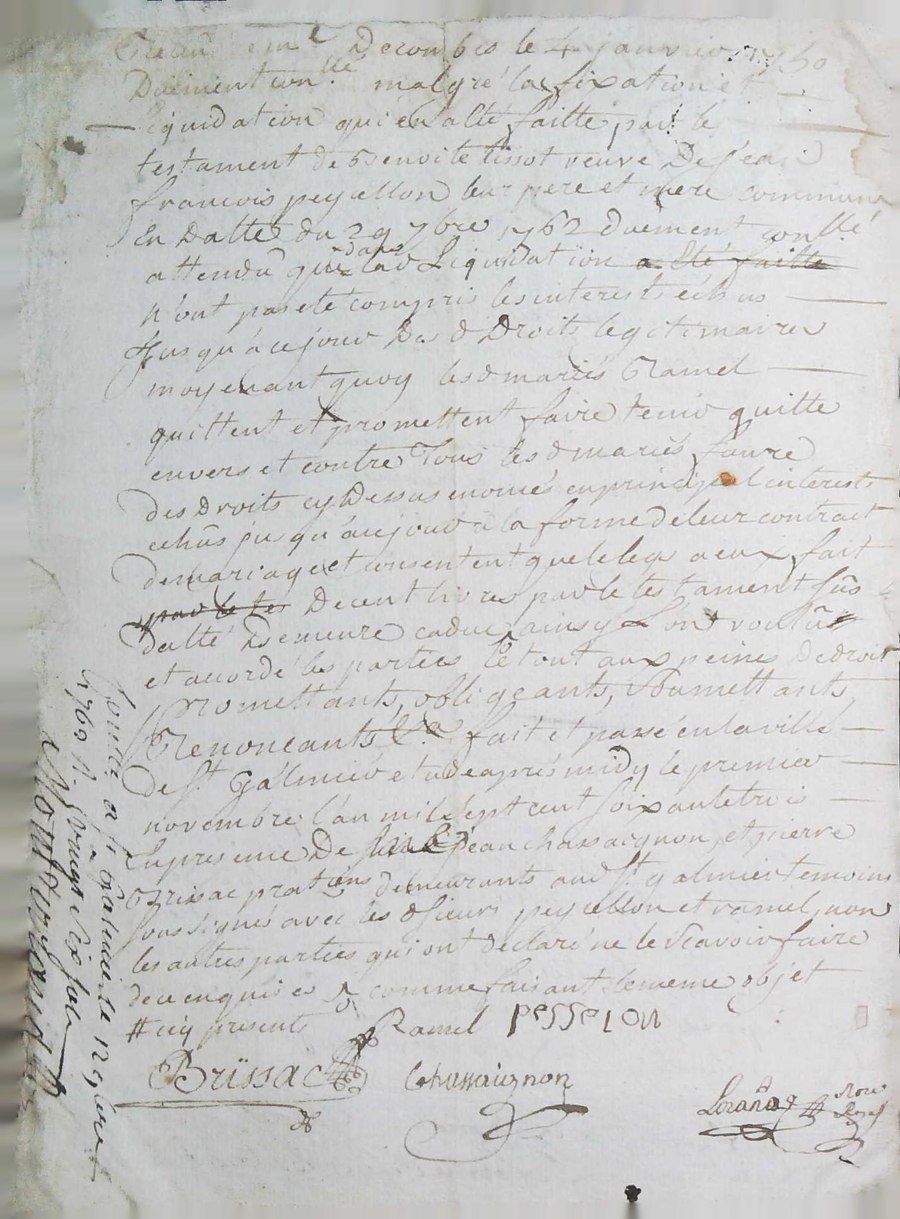 Decombes le 4 janvier 1750
Duement con.llé malgré la fixation et
liquidation qui en a esté faitte par le
testament de Benoite tissot veuve De jean
francois peycellon leur pere et mere communs
En Datte du 29 7bre 1762 Duement conllé
attendu que dans la d Liquidation a été faitte
n'ont pas eté compris les interests échus
Jusqu'à ce jour Des d Droits legitimaires
moyenant quoy les d mariés Ramel
quittent et promettent faire tenir quitte
envers et contre Tous les d mariés faure
des Droits cy Dessus enoncés en principal interests
echûs jusqu'à ce jour à la forme de leur contrat
de mariage et consentent que le legs a eux fait
par le tes De cent livres par le testament sûs
datté Demeure caduc ainsy l'ont voulû
et accordé les parties Le tout aux peines de droit
Promettants, obligeants, Soumettants,
Renoncants &a fait et passé en la ville
de St Galmier etude après midy le premier
novembre l'an mil sept cent soixante trois
En presence De Jean Chassaignon, et pierre
Brissac pratiens demeurants aud St galmier temoins
soussignés avec les d sieurs peycellon et ramel, non
les autres parties qui ont declaré ne le scavoir faire
de ce enquises comme faisant le meme objet
# icy presents Ramel PESSELON
Brissac Chassaignon
Conllé a St Galmier le 12 9bre
1763 R.